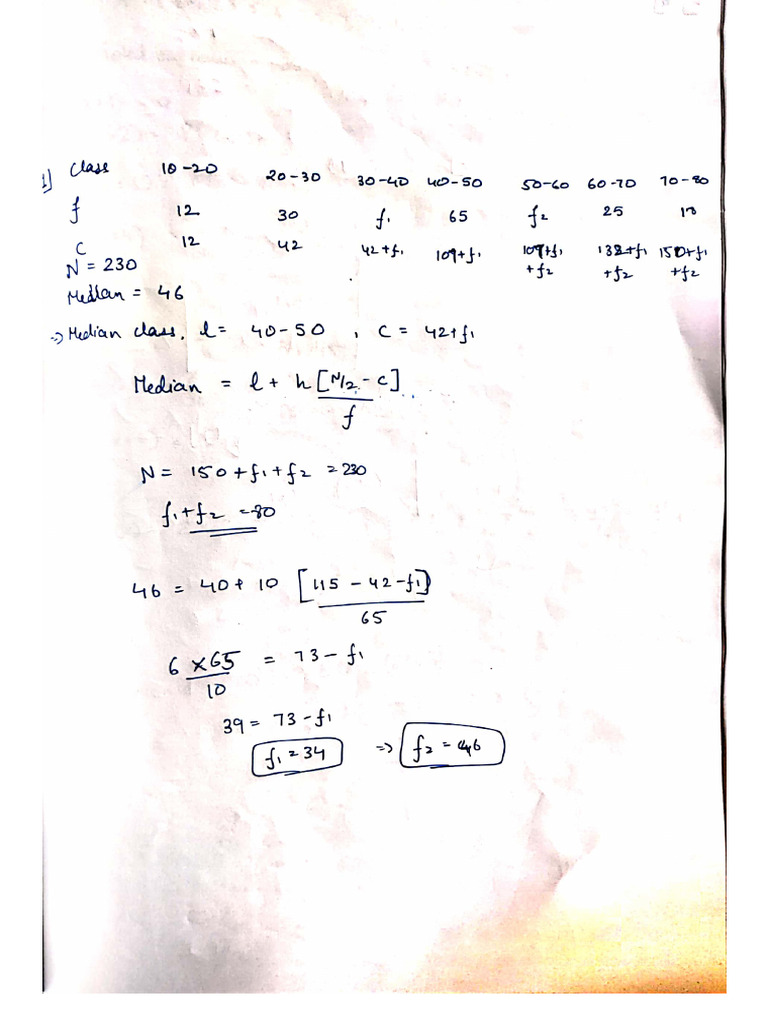 1] Class 10-20 20-30 30-40 40-50 50-60 60-70 70-80
f 12 30 f₁ 65 f₂ 25 18
C 12 42 42+f₁ 109+f₁ 109+f₁+f₂ 132+f₁+f₂ 150+f₁+f₂
N = 230
Median = 46
=> Median class, l = 40-50 , C = 42+f₁
Median = l + h[N/2 - c]/f
N = 150+f₁+f₂ = 230
f₁+f₂ = 80
46 = 40+10 [115-42-f₁]/65
6×65/10 = 73-f₁
39 = 73-f₁
f₁ = 34 => f₂ = 46